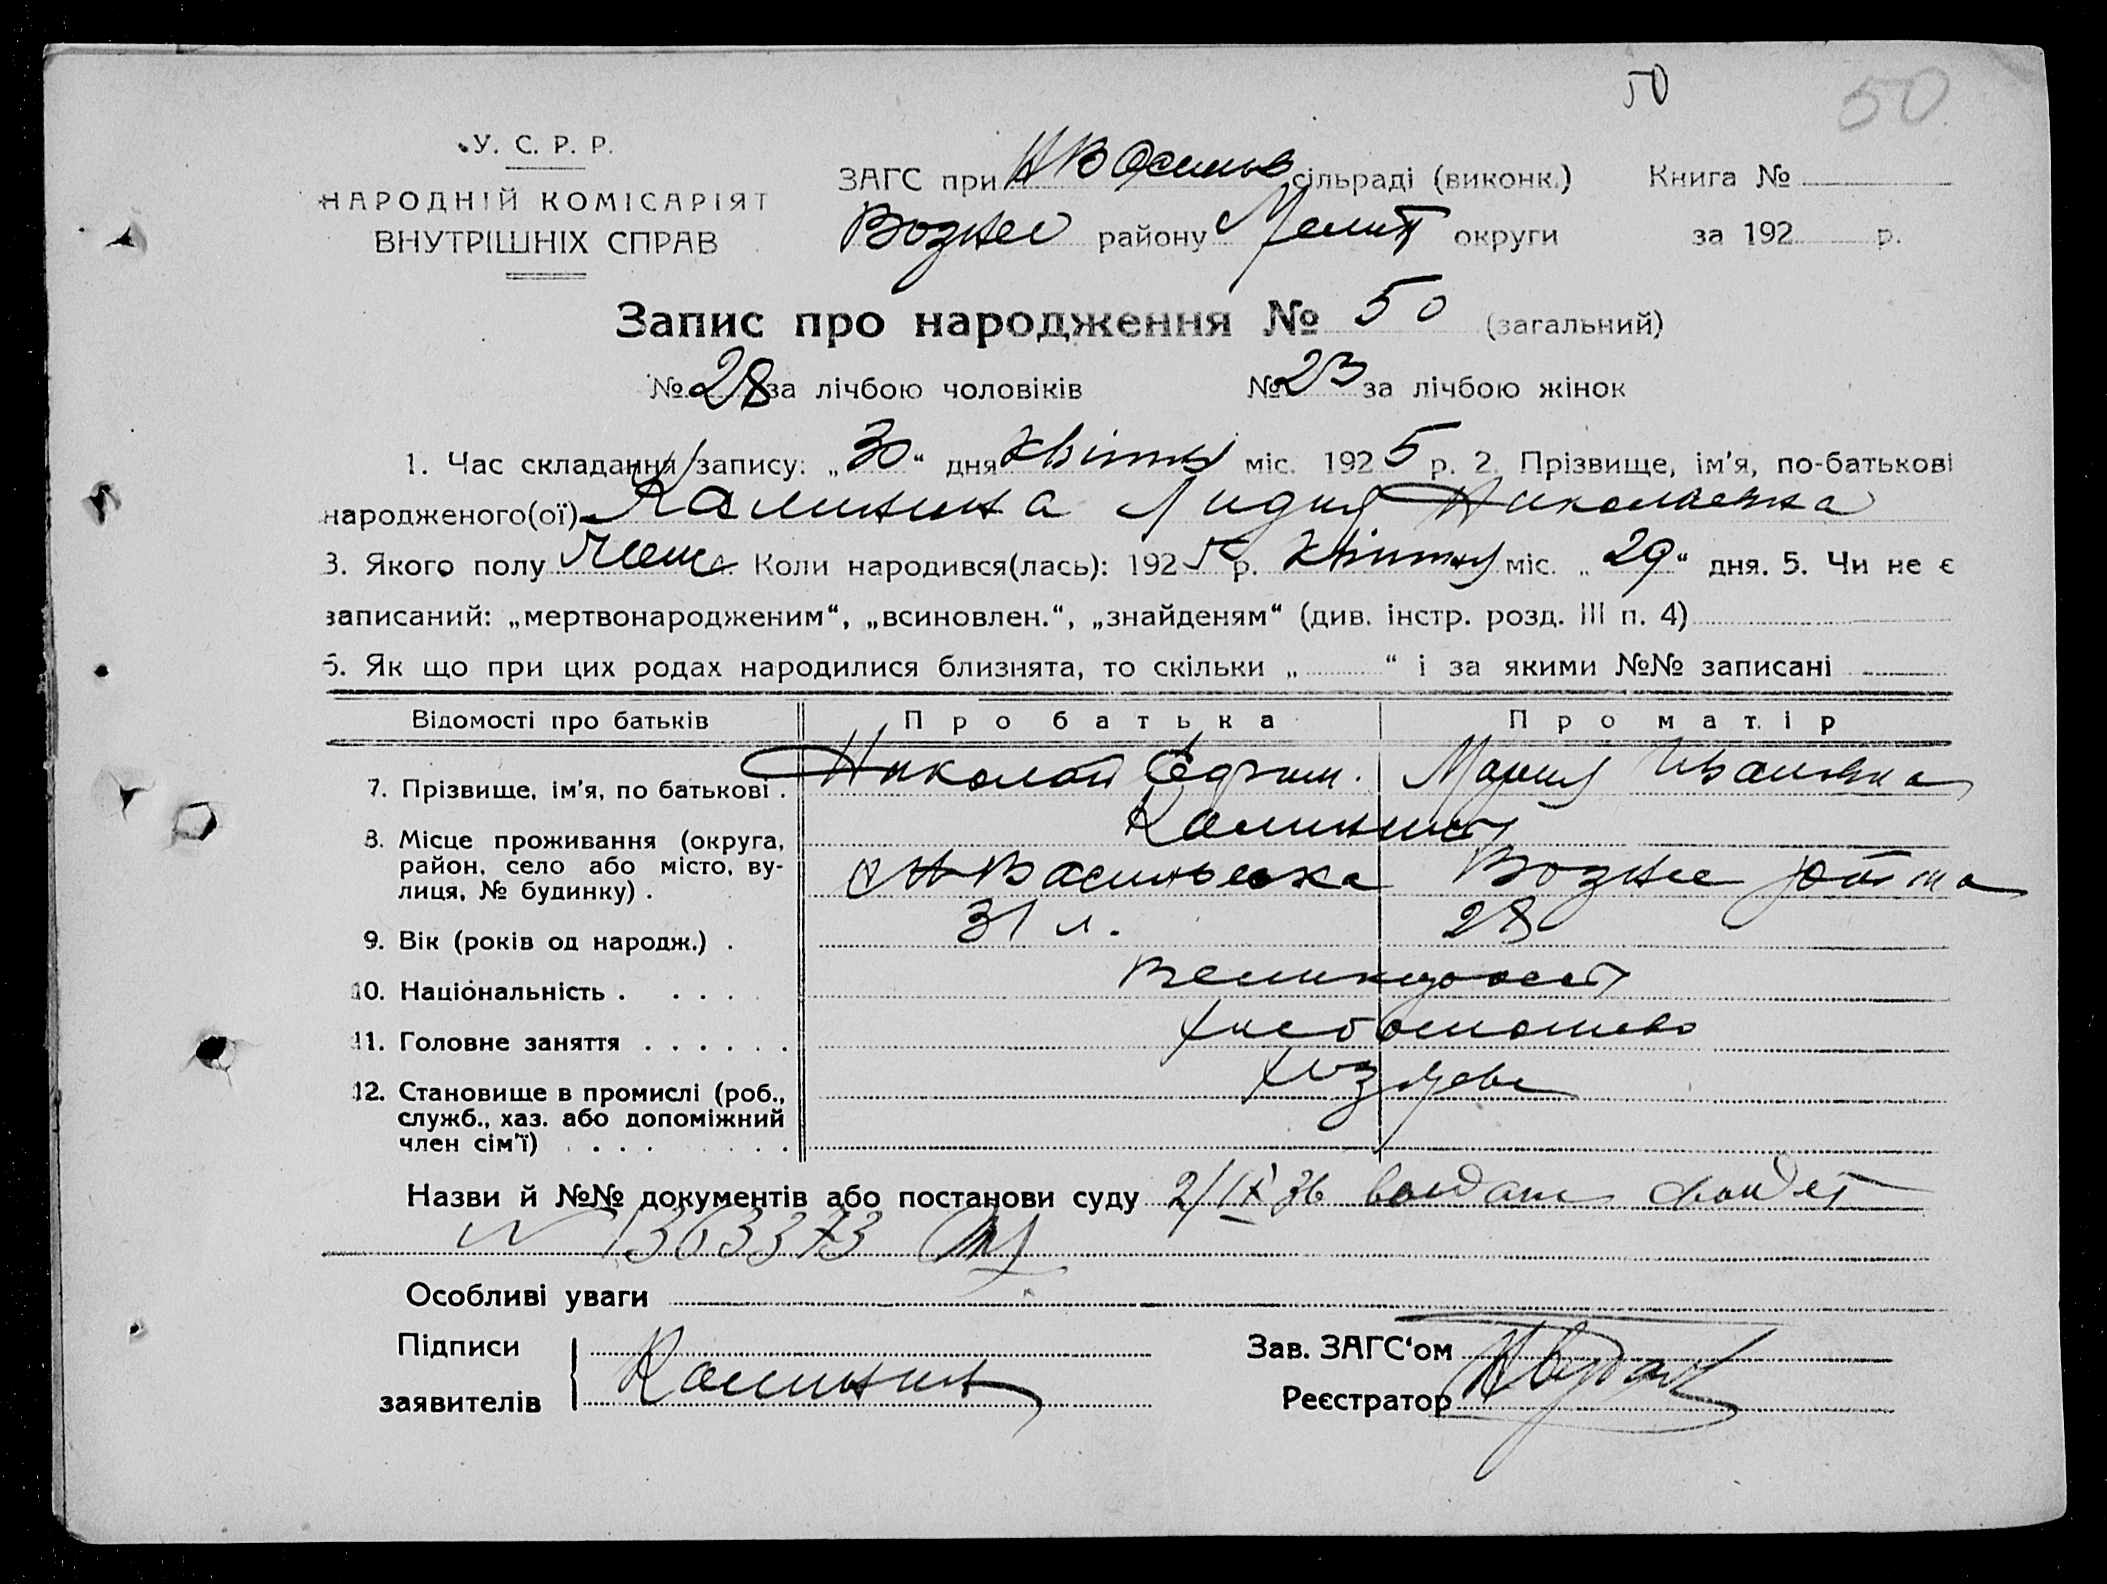 50
50
У. С. Р. Р.
НАРОДНІЙ КОМІСАРІЯТ
ВНУТРІШНІХ СПРАВ
ЗАГС при Н Васильев сільраді (виконк.) Книга №
Вознес району Мелит округи за 192 р.
Запис про народження № 50 (загальний)
№ 28 за лічбою чоловіків № 23 за лічбою жінок
1. Час складання запису: „30“ дня квітня міс. 1925 р. 2. Прізвище, ім'я, по-батькові
народженого(ої) Калинина Лидия Николаевна
3. Якого полу Жен. Коли народився(лась): 1925 р. квітня міс. „29“ дня. 5. Чи не є
записаний: „мертвонародженим“, „всиновлен.“, „знайденям“ (див. інстр. розд. III п. 4)
6. Як що при цих родах народилися близнята, то скільки „ “ і за якими №№ записані
Відомості про батьків Про батька Про матір
7. Прізвище, ім'я, по батькові . Николай Ефрим. Мария Ивановна
Калинины
8. Місце проживання (округа,
район, село або місто, ву-
лиця, № будинку) . Н Васильевка Вознес района
9. Вік (років од народж.) . 31 л. 28
10. Національність . . . . Великоросс
11. Головне заняття . . . . . . Хлебопашево
12. Становище в промислі (роб.,
служб., хаз. або допоміжний
член сім'ї) . . . .
Назви й №№ документів або постанови суду 2/IX 36
№ 1363373
Особливі уваги
Підписи
заявителів Калинин
Зав. ЗАГС'ом
Реєстратор